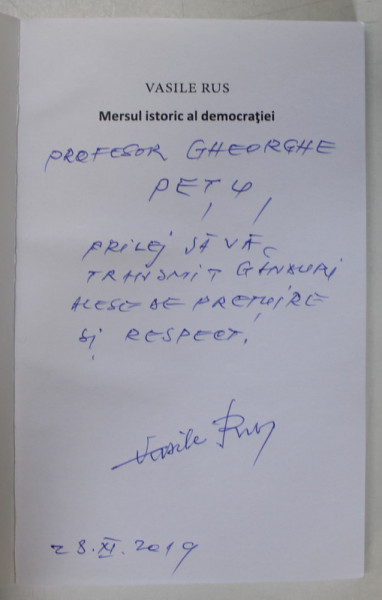 VASILE RUS
Mersul istoric al democraţiei
PROFESOR GHEORGHE
PEȚU
PRILEJ SĂ VĂ
TRANSMIT GÂNDURI
ALESE DE PREȚUIRE
ȘI RESPECT.
Vasile Rus
28.XI.2019